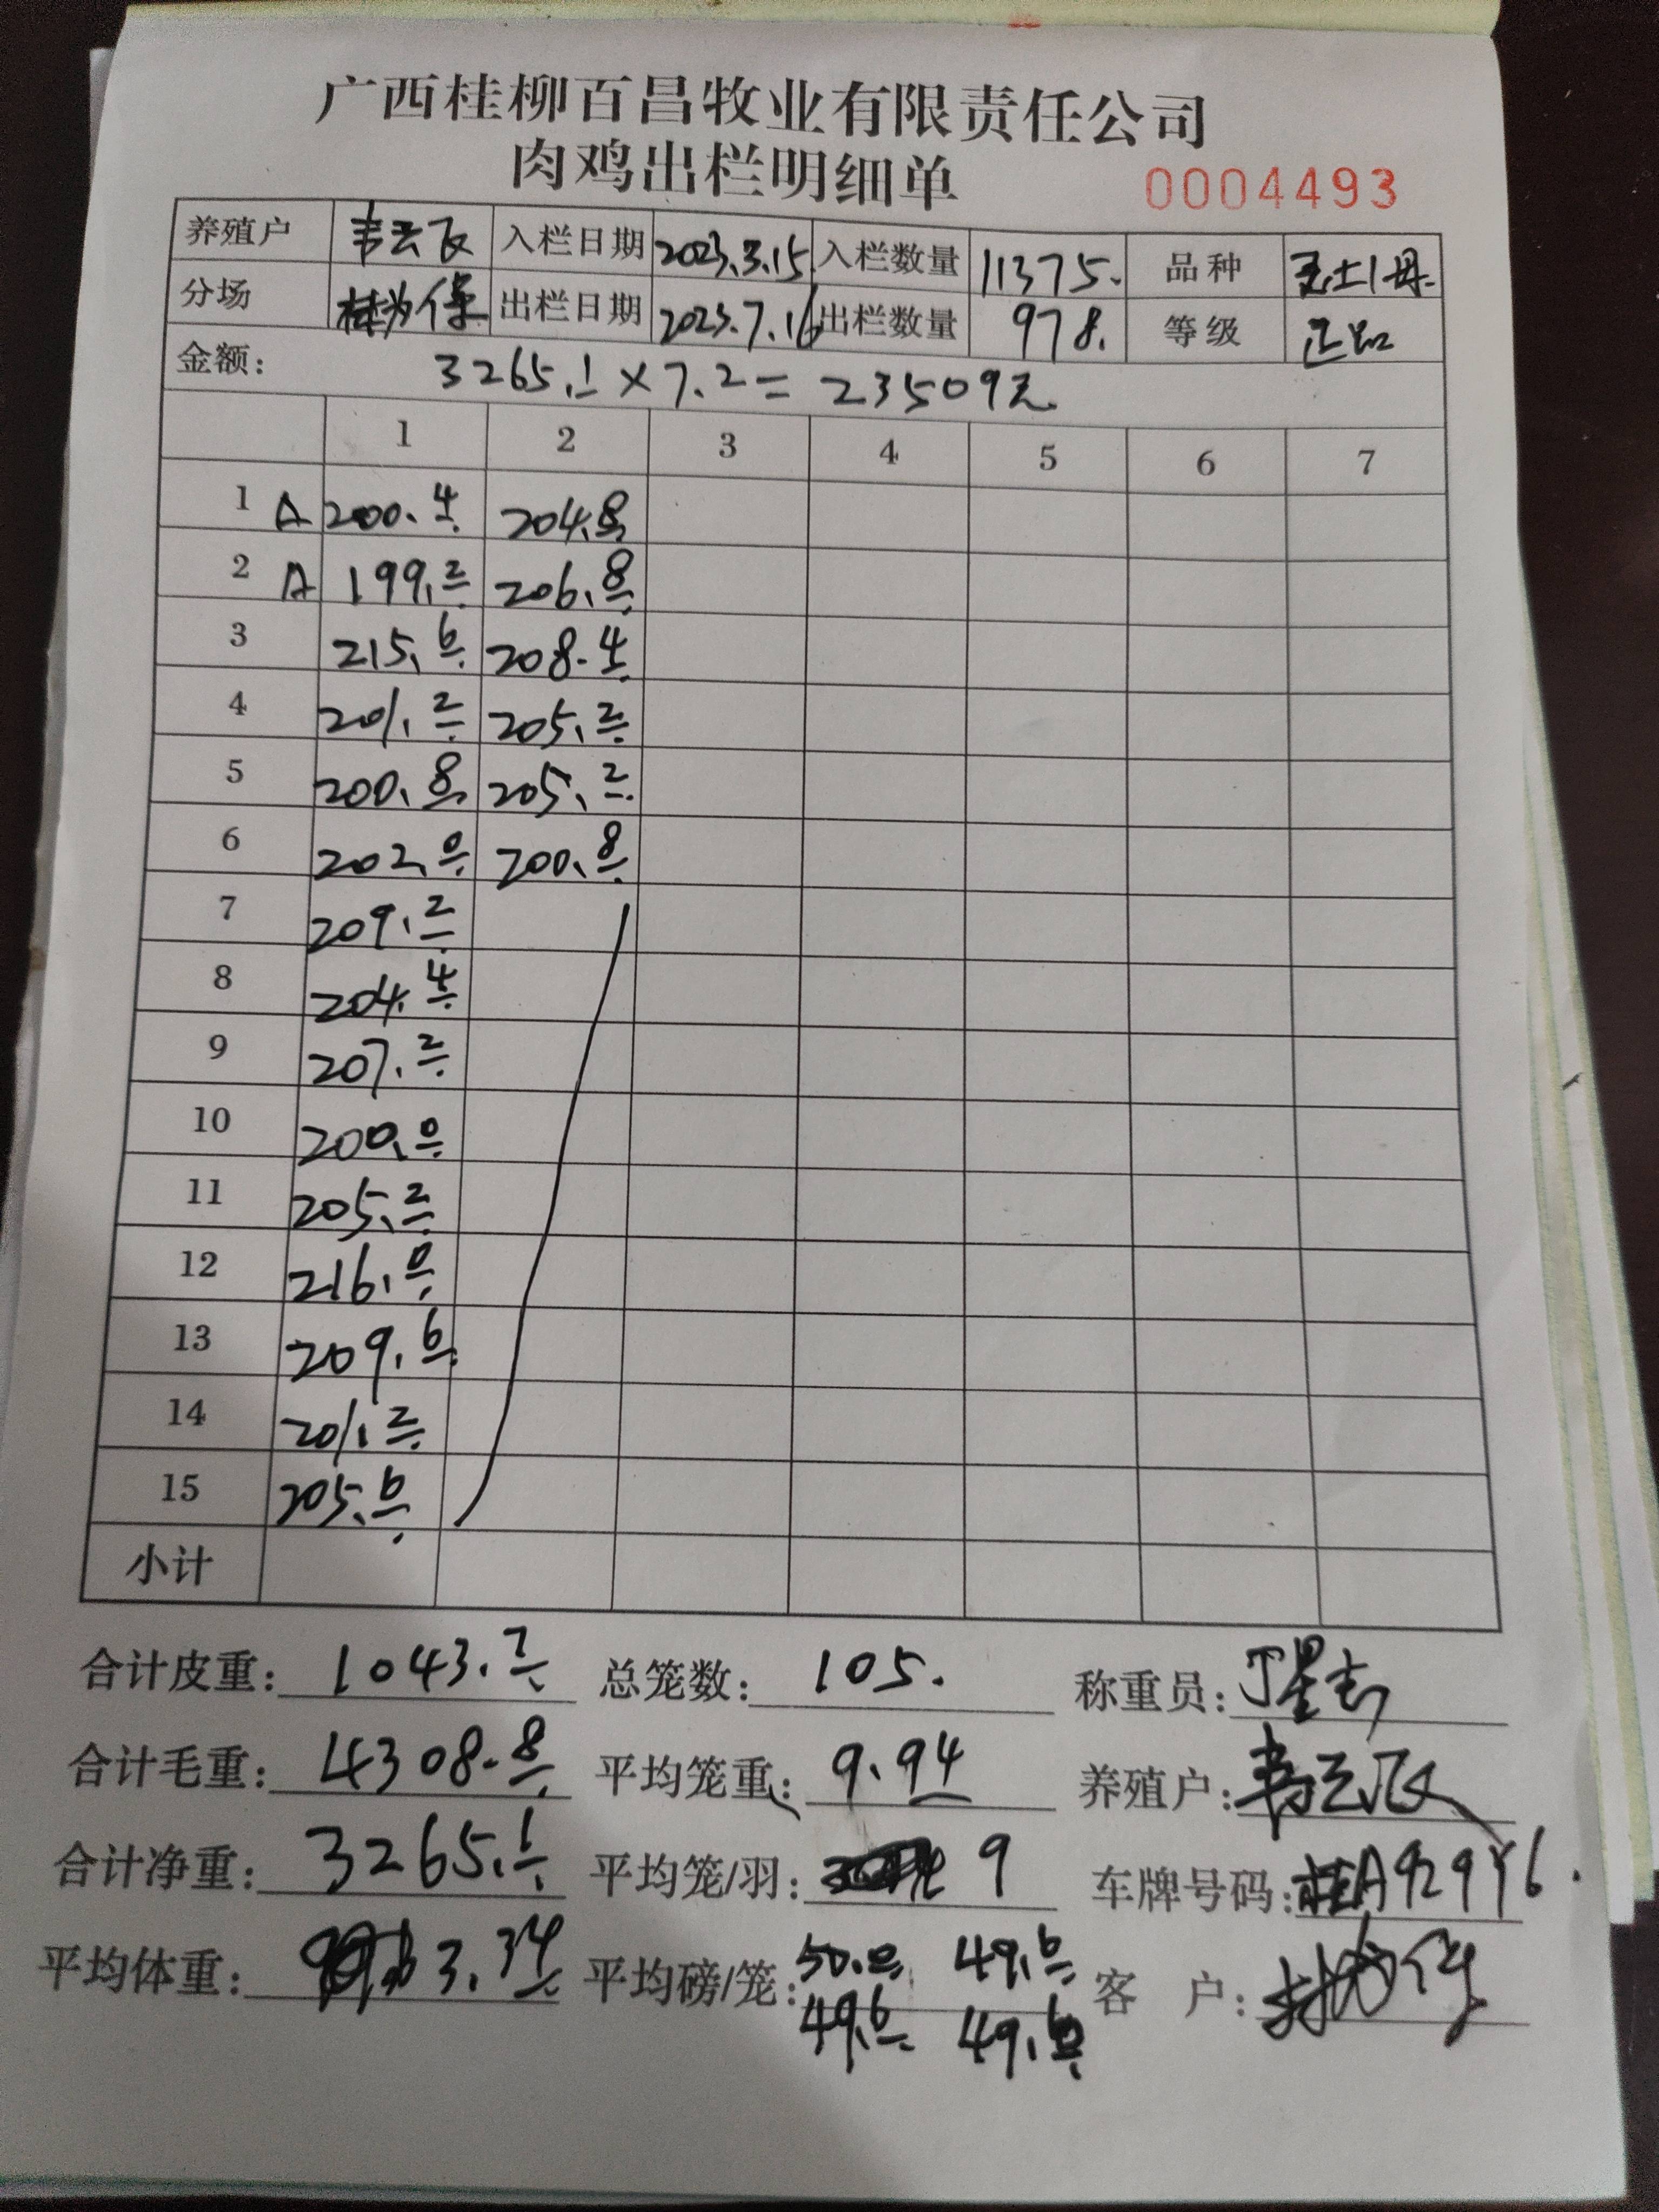 广西桂柳百昌牧业有限责任公司
肉鸡出栏明细单 0004493
养殖户 韦云飞 入栏日期 2023.3.15 入栏数量 11375. 品种
分场 出栏日期 2023.7.16 出栏数量 978. 等级 正品
金额: 3265.1×7.2=23509元
1 2 3 4 5 6 7
1 A 200.4 204.8
2 A 199.2 206.8
3 215.6 208.4
4 201.2 205.2
5 200.8 205.2
6 202.0 200.8
7 209.2
8 204.4
9 207.2
10 200.0
11 205.2
12 216.0
13 209.6
14 201.2
15 205.6
小计
合计皮重: 1043.7 总笼数: 105. 称重员:
合计毛重: 4308.8 平均笼重: 9.94 养殖户: 韦云飞
合计净重: 3265.1 平均笼/羽: 9 车牌号码: 桂A929Y6.
平均体重: 3.34 平均磅/笼: 50.0 49.6 客 户:
49.6 49.6